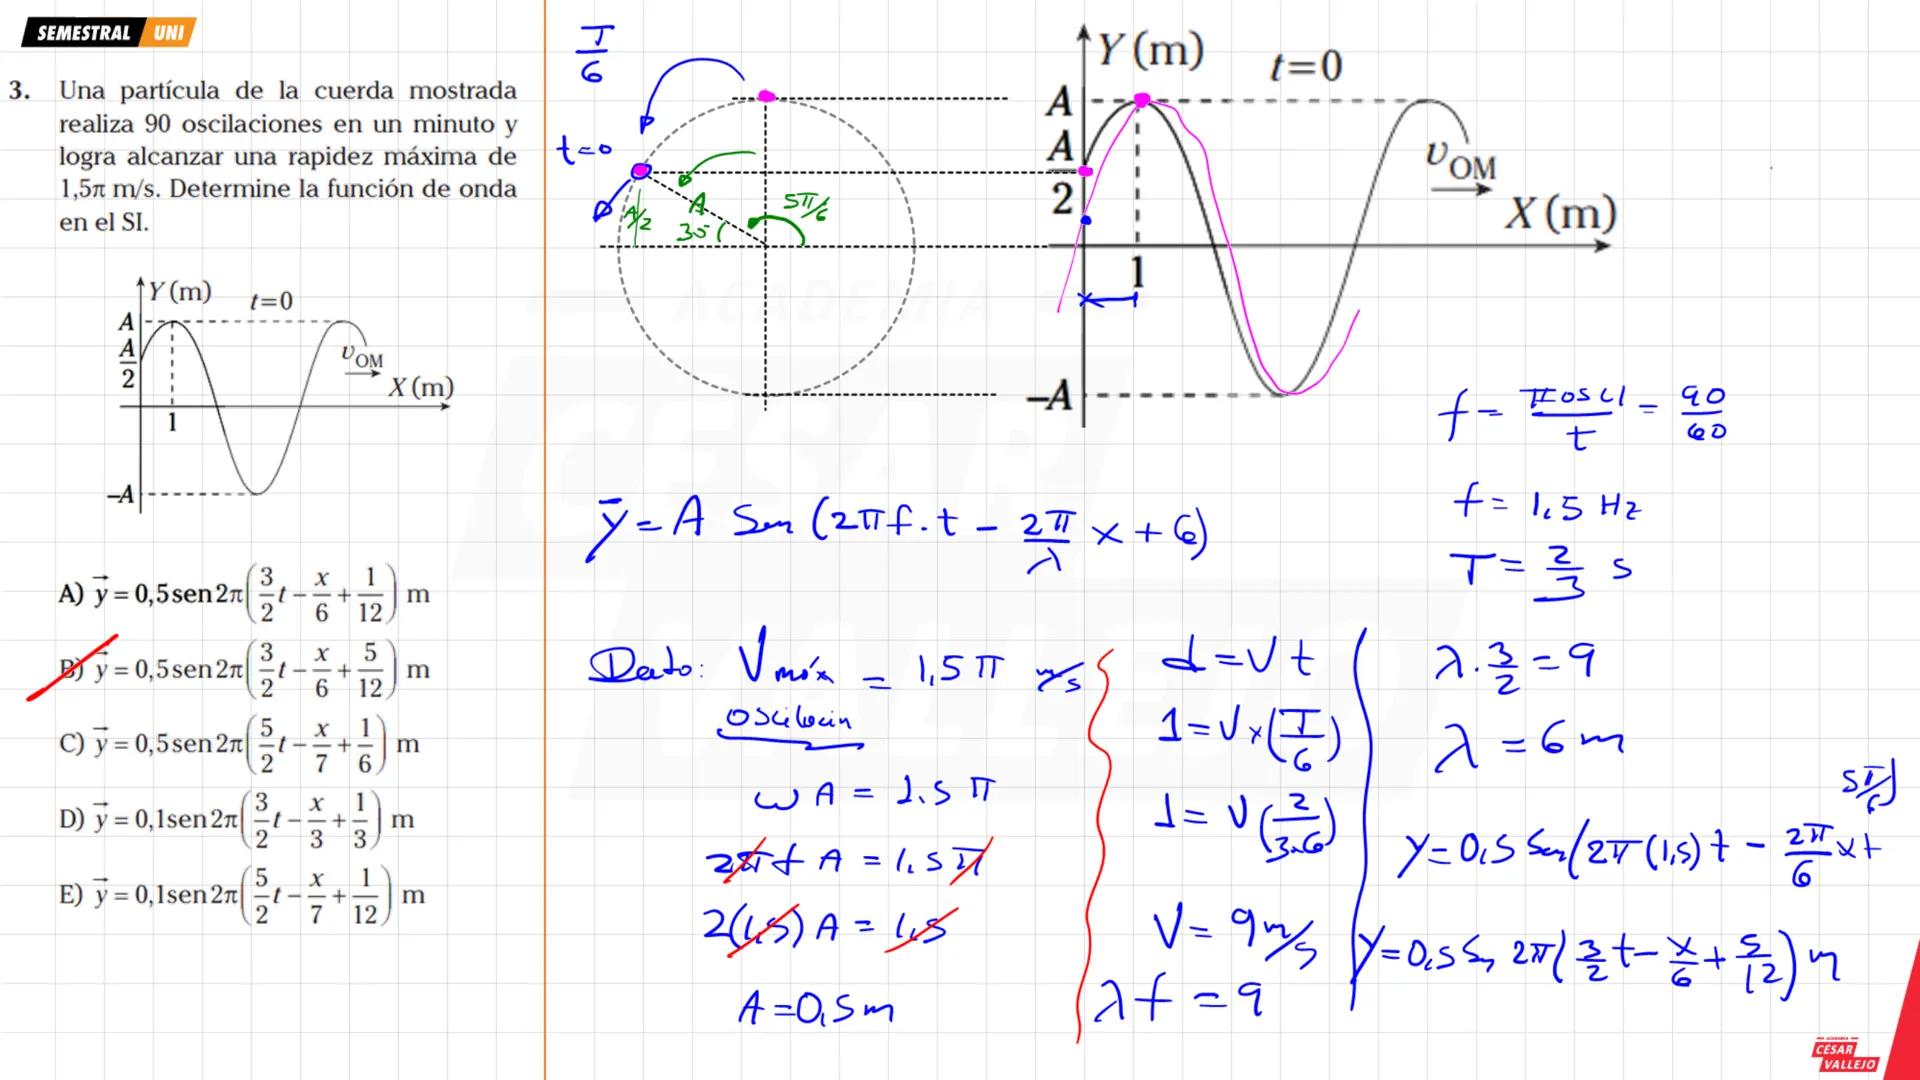 SEMESTRAL UNI
3. Una partícula de la cuerda mostrada
realiza 90 oscilaciones en un minuto y
logra alcanzar una rapidez máxima de
1,5π m/s. Determine la función de onda
en el SI.
Y (m)
t=0
A
A/2
v_OM
X (m)
1
–A
A) y⃗ = 0,5sen2π(3/2 t – x/6 + 1/12) m
B) y⃗ = 0,5sen2π(3/2 t – x/6 + 5/12) m
C) y⃗ = 0,5sen2π(5/2 t – x/7 + 1/6) m
D) y⃗ = 0,1sen2π(3/2 t – x/3 + 1/3) m
E) y⃗ = 0,1sen2π(5/2 t – x/7 + 1/12) m
T/6
t=0
A/2
A
30
5π/6
Y (m)
t=0
A
A/2
v_OM
X (m)
1
–A
ACADEMIA
CÉSAR
VALLEJO
f = # oscl / t = 90/60
f = 1,5 Hz
T = 2/3 s
y = A Sen (2πf.t – 2π/λ x + 6)
Dato: V máx = 1,5 π m/s
oscilación
ω A = 1.5 π
2π f A = 1,5 π
2(1,5) A = 1,5
A = 0,5 m
d = V t
1 = V x (T/6)
1 = V (2/3.6)
V = 9 m/s
λ f = 9
λ . 3/2 = 9
λ = 6 m
5π/6)
Y = 0,5 Sen (2π (1,5) t – 2π/6 x +
Y = 0,5 Sen 2π (3/2 t – x/6 + 5/12) m
ACADEMIA
CÉSAR
VALLEJO